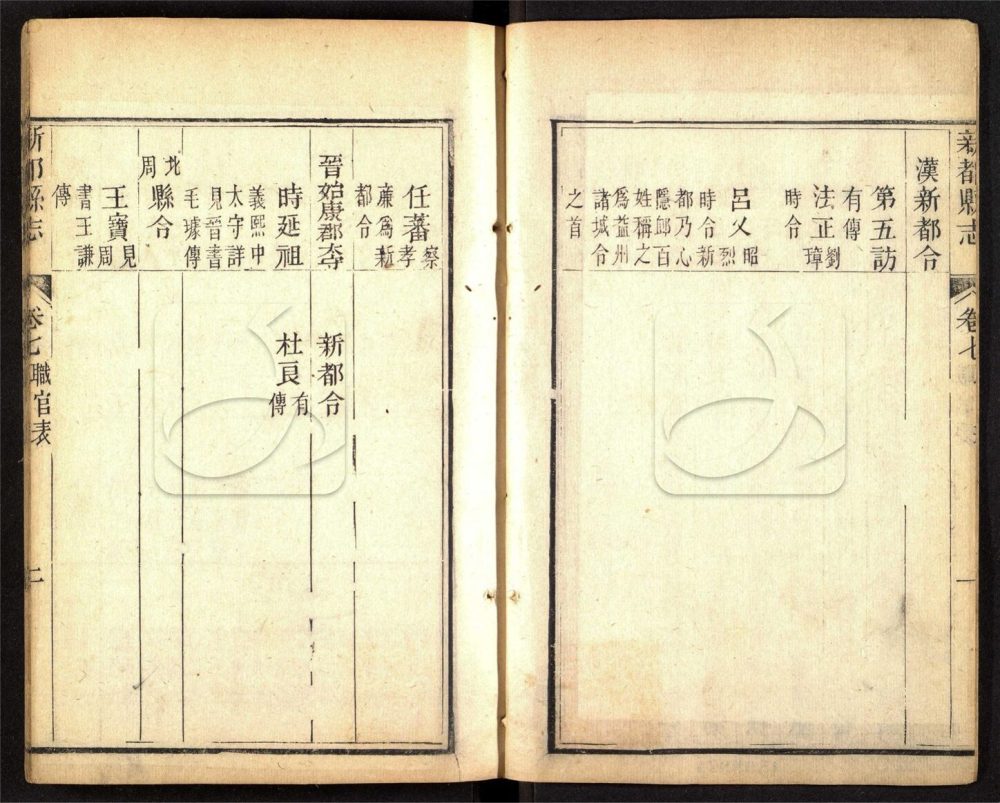 新都縣志
卷七
一
漢新都令
第五訪
有傳
法正劉
璋
時令
呂乂昭
烈
時令新
都乃心
隱卹百
姓稱之
爲益州
諸城令
之首
任蕃察
孝
廉爲新
都令
晉始康郡
新都令
時延祖
義熙中
太守詳
見晉書
毛璩傳
杜良有
傳
北
周
縣令
王寶見
周
書王謙
傳
新都縣志
卷七
職官表
二